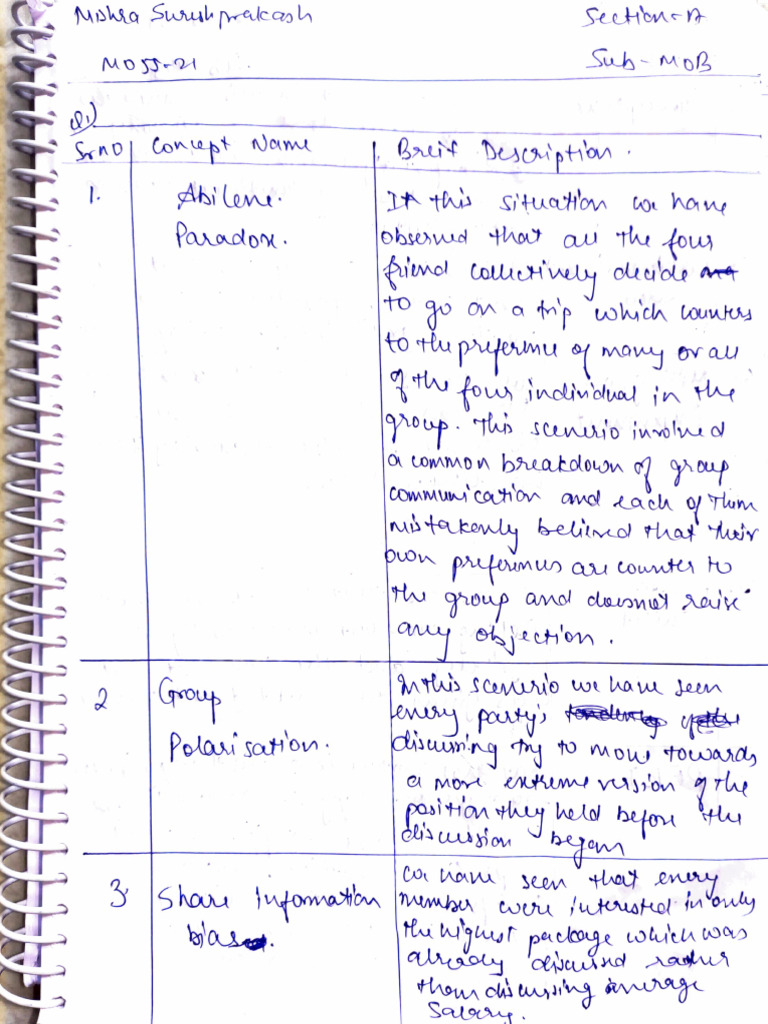 Mishra Sureshprakash Section-A
MO55-21 Sub-MOB
Q1)
Sr no Concept Name Breif Description.
1. Abilene. In this situation we have
Paradox. observed that all the four
friend collectively decide
to go on a trip which counters
to the preference of many or all
of the four individual in the
group. This scenerio involved
a common breakdown of group
communication and each of them
mistakenly believed that their
own preferences are counter to
the group and doesnot raise
any objection.
2 Group In this scenerio we have seen
every party's
Polarisation. discussing try to move towards
a more extreme version of the
position they held before the
discussion began
3. Share information we have seen that every
bias. member were interested in only
the highest package which was
already discussed rather
them discussing average
salary.